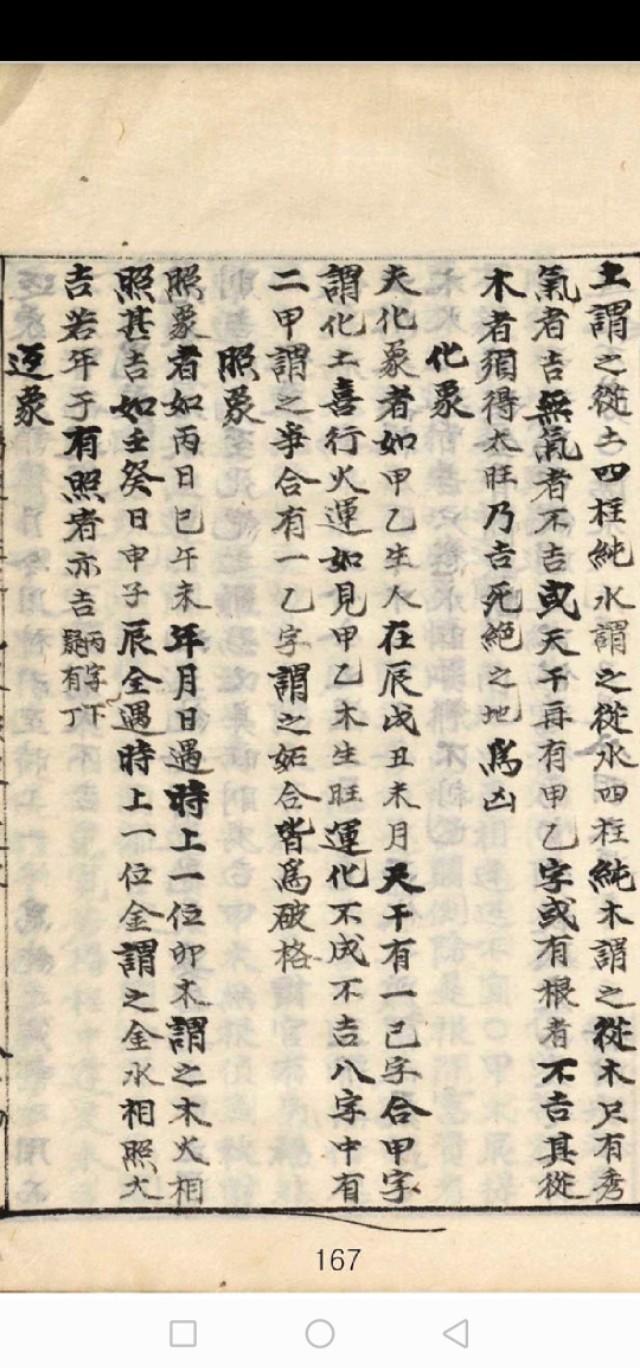 土謂之從土四柱純水謂之從水四柱純木謂之從木只有秀
氣者吉無氣者不吉或天干再有甲乙字或有根者不吉其從
木者須得太旺乃吉死絕之地為凶
化象
夫化象者如甲乙生人在辰戌丑未月天干有一己字合甲字
謂化土喜行火運如見甲乙木生旺運化不成不吉八字中有
二甲謂之爭合有一乙字謂之妬合皆為破格
照象
照象者如丙日巳午未年月日遇時上一位卯木謂之木火相
照甚吉如壬癸日申子辰全遇時上一位金謂之金水相照大
吉若年干有照者亦吉丙字下疑有丁
返象
167